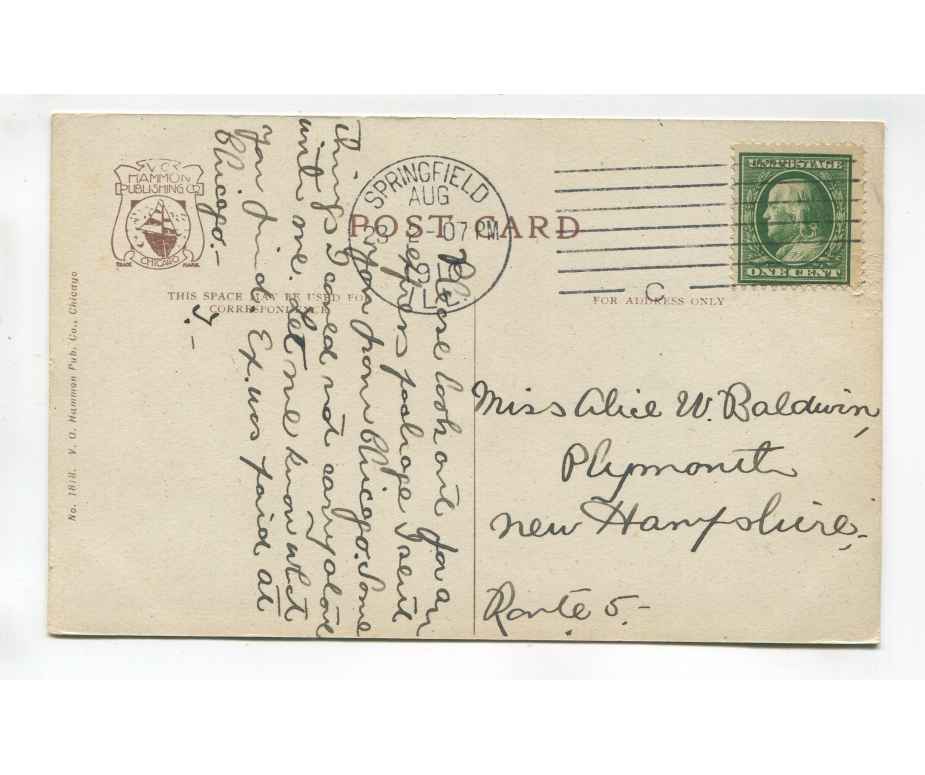 V.O.
HAMMON
PUBLISHING CO
CHICAGO
TRADE MARK
POST CARD
THIS SPACE MAY BE USED FOR
CORRESPONDENCE
FOR ADDRESS ONLY
No. 1818. V. O. Hammon Pub. Co., Chicago
SPRINGFIELD
AUG
7 PM
ILL
C
U.S. POSTAGE
ONE CENT
Please look out for an
express package I sent
you from Chicago. Some
things I could not carry along
with me. Let me know what
you find. Ex. was paid at
Chicago.-
J.-
Miss Alice W. Baldwin,
Plymouth
New Hampshire,
Route 5-